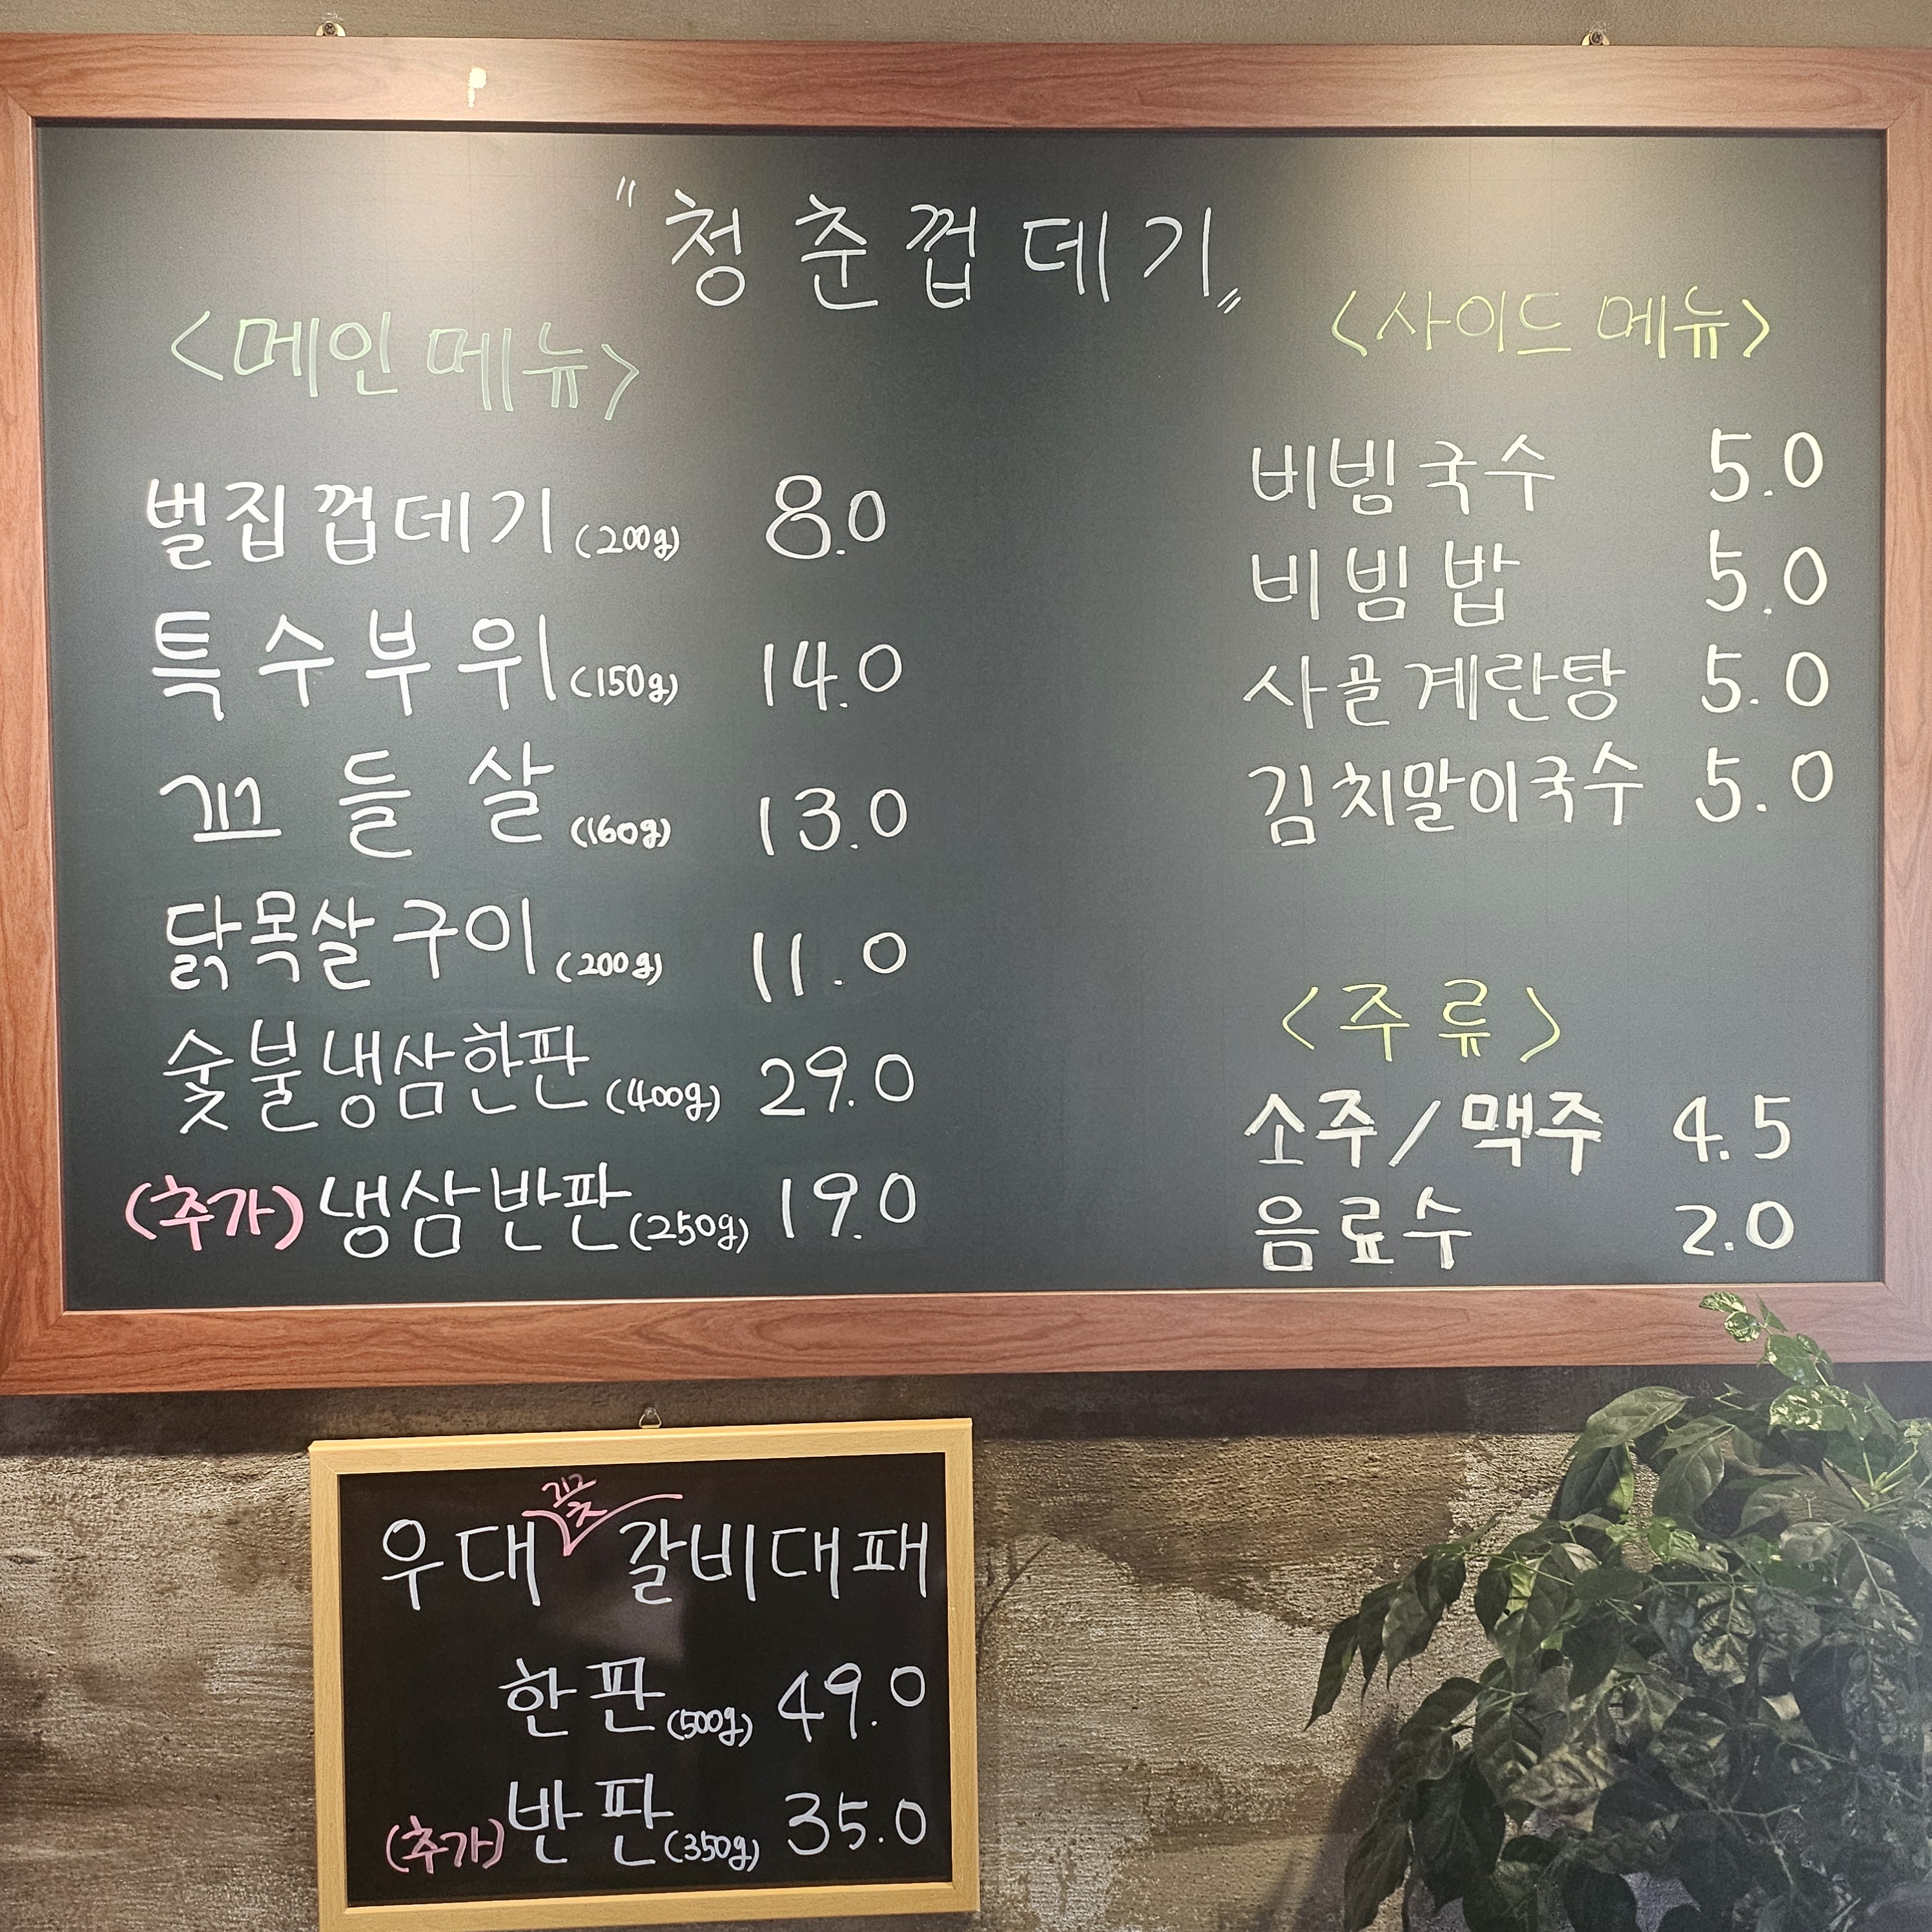 "청춘껍데기"
<메인메뉴>
벌집껍데기 (200g) 8.0
특수부위 (150g) 14.0
꼬들살 (160g) 13.0
닭목살구이 (200g) 11.0
숯불냉삼한판 (400g) 29.0
(추가) 냉삼반판 (250g) 19.0
<사이드 메뉴>
비빔국수 5.0
비빔밥 5.0
사골계란탕 5.0
김치말이국수 5.0
<주류>
소주/맥주 4.5
음료수 2.0
우대 갈비대패
한판 (500g) 49.0
(추가) 반판 (350g) 35.0